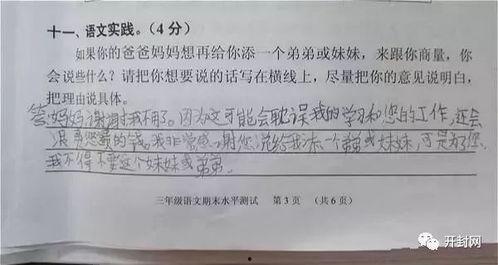 十一、语文实践。（4分）
如果你的爸爸妈妈想再给你添一个弟弟或妹妹，来跟你商量，你
会说些什么？请把你想要说的话写在横线上，尽量把你的意见说明白，
把理由说具体。
答妈妈谢谢，我不用了。因为这可能会耽误我的学习和您的工作，还会
浪费您的钱。我非常感谢您说给我添一个弟或妹妹，可是为了您，
我不得不要这个妹妹或弟弟.
三年级语文期末水平测试 第3页 （共6页）
开封网